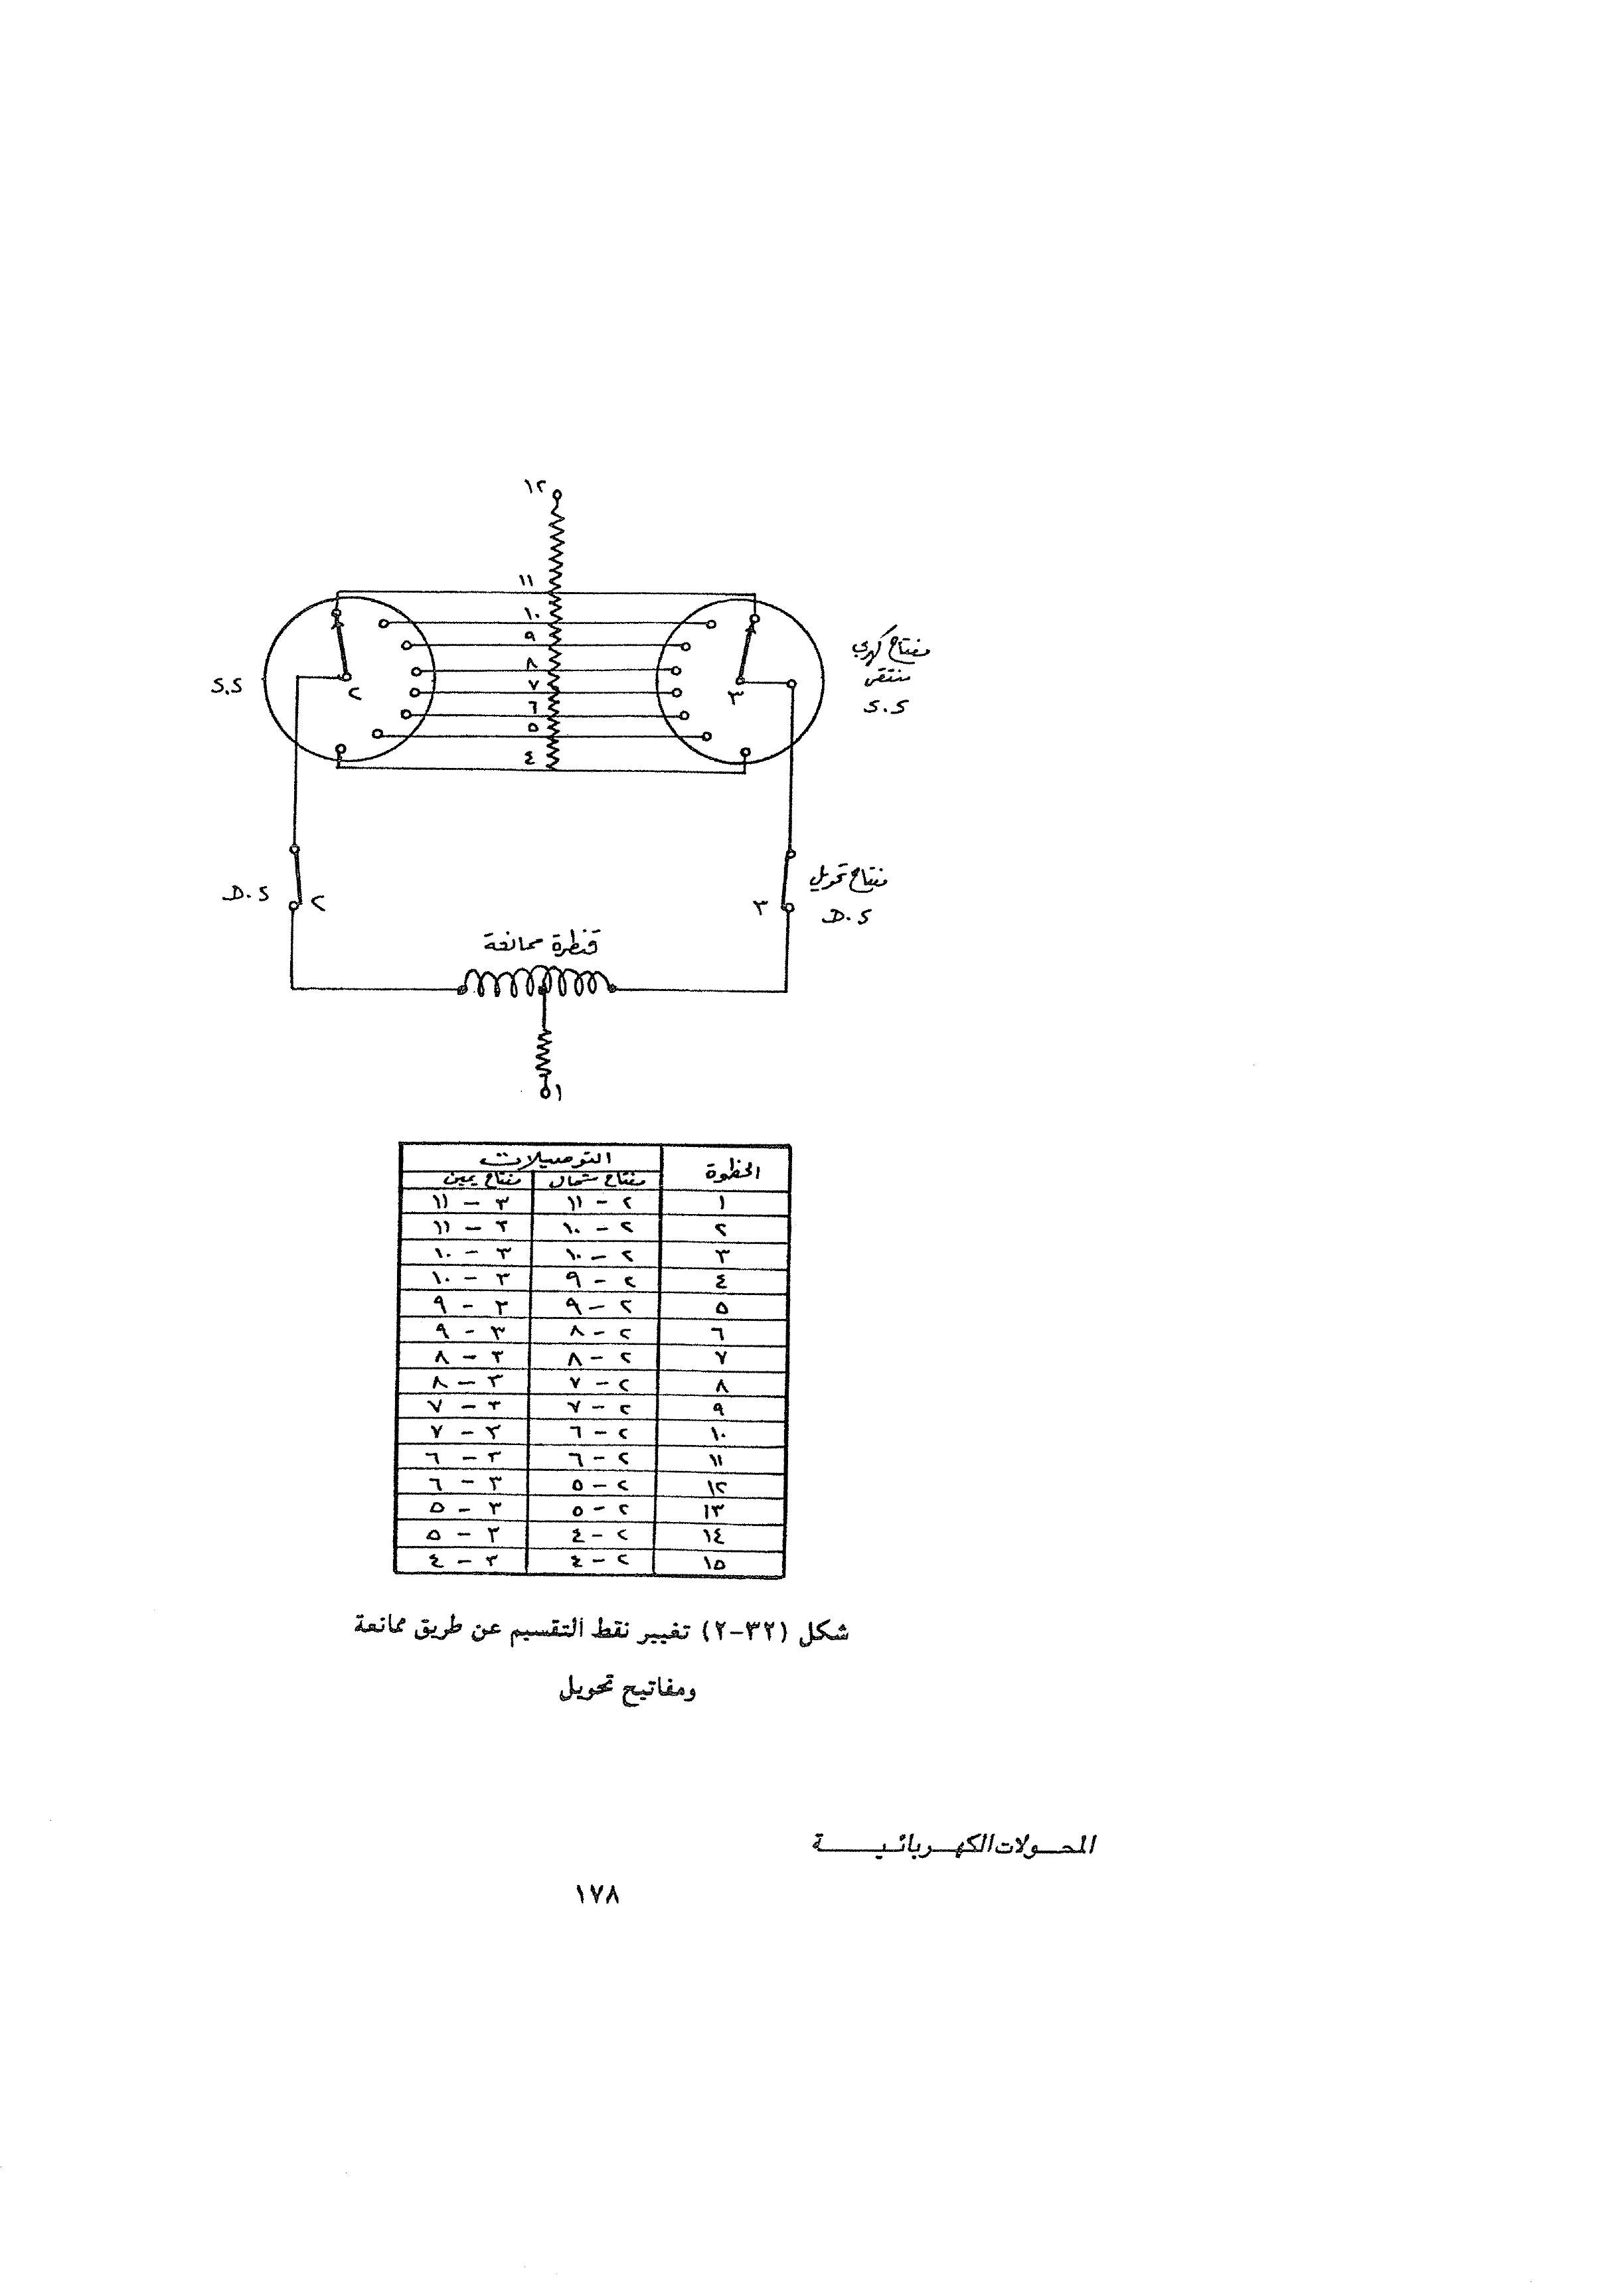 ١٢
١١
١٠
٩
٨
٧
٦
٥
٤
مفتاح كهربي
منتقى
S.S
٣
٢
S.S
مفتاح تحويل
D.S
٣
٢
D.S
قنطرة ممانعة
١
الخطوة التوصيلات
مفتاح شمال مفتاح يمين
١ ٢ - ١١ ٣ - ١١
٢ ٢ - ١٠ ٣ - ١١
٣ ٢ - ١٠ ٣ - ١٠
٤ ٢ - ٩ ٣ - ١٠
٥ ٢ - ٩ ٣ - ٩
٦ ٢ - ٨ ٣ - ٩
٧ ٢ - ٨ ٣ - ٨
٨ ٢ - ٧ ٣ - ٨
٩ ٢ - ٧ ٣ - ٧
١٠ ٢ - ٦ ٣ - ٧
١١ ٢ - ٦ ٣ - ٦
١٢ ٢ - ٥ ٣ - ٦
١٣ ٢ - ٥ ٣ - ٥
١٤ ٢ - ٤ ٣ - ٥
١٥ ٢ - ٤ ٣ - ٤
شكل (٣٢-٢) تغيير نقط التقسيم عن طريق ممانعة
ومفاتيح تحويل
المحولات الكهربائية
١٧٨